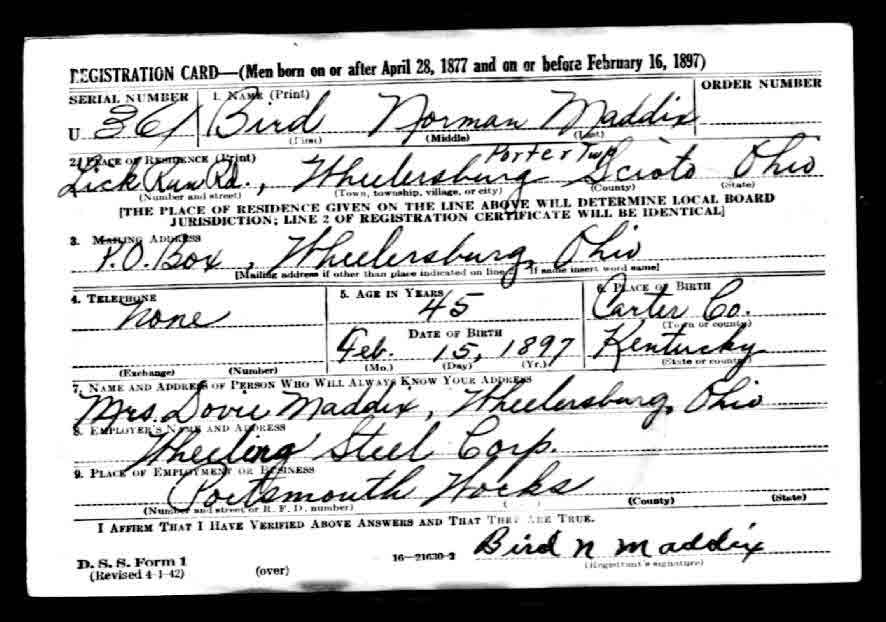 REGISTRATION CARD—(Men born on or after April 28, 1877 and on or before February 16, 1897)
SERIAL NUMBER 1. NAME (Print) ORDER NUMBER
U 361 Bird Norman Maddix
(First) (Middle) (Last)
2. PLACE OF RESIDENCE (Print)
Porter Twp
Lick Run Rd., Wheelersburg Scioto Ohio
(Number and street) (Town, township, village, or city) (County) (State)
[THE PLACE OF RESIDENCE GIVEN ON THE LINE ABOVE WILL DETERMINE LOCAL BOARD
JURISDICTION; LINE 2 OF REGISTRATION CERTIFICATE WILL BE IDENTICAL]
3. MAILING ADDRESS
P.O. Box, Wheelersburg, Ohio
[Mailing address if other than place indicated on line 2. If same insert word same]
4. TELEPHONE 5. AGE IN YEARS 6. PLACE OF BIRTH
None 45 Carter Co.
(Town or county)
DATE OF BIRTH
Feb. 15, 1897 Kentucky
(Exchange) (Number) (Mo.) (Day) (Yr.) (State or country)
7. NAME AND ADDRESS OF PERSON WHO WILL ALWAYS KNOW YOUR ADDRESS
Mrs. Dovie Maddix, Wheelersburg, Ohio
8. EMPLOYER'S NAME AND ADDRESS
Wheeling Steel Corp.
9. PLACE OF EMPLOYMENT OR BUSINESS
Portsmouth Works
(Number and street or R. F. D. number) (County) (State)
I AFFIRM THAT I HAVE VERIFIED ABOVE ANSWERS AND THAT THEY ARE TRUE.
Bird N Maddix
D. S. S. Form 1 16—21630-2
(Revised 4-1-42) (over) (Registrant's signature)